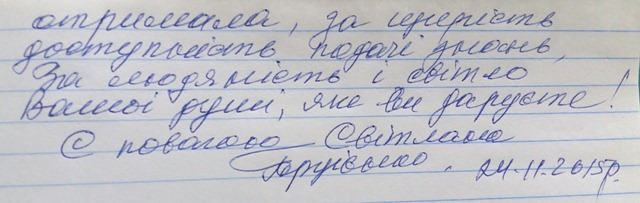 отримала, за щирість
доступність подачі знань,
За людяність і світло
Вашої душі, яке ви даруєте!
С повагою Світлана
24.11.2015р.